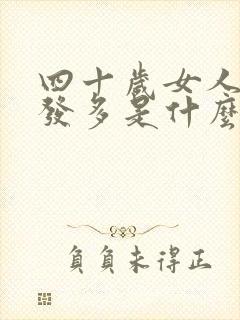 四十歲女人
發多是什麼
負負未得正